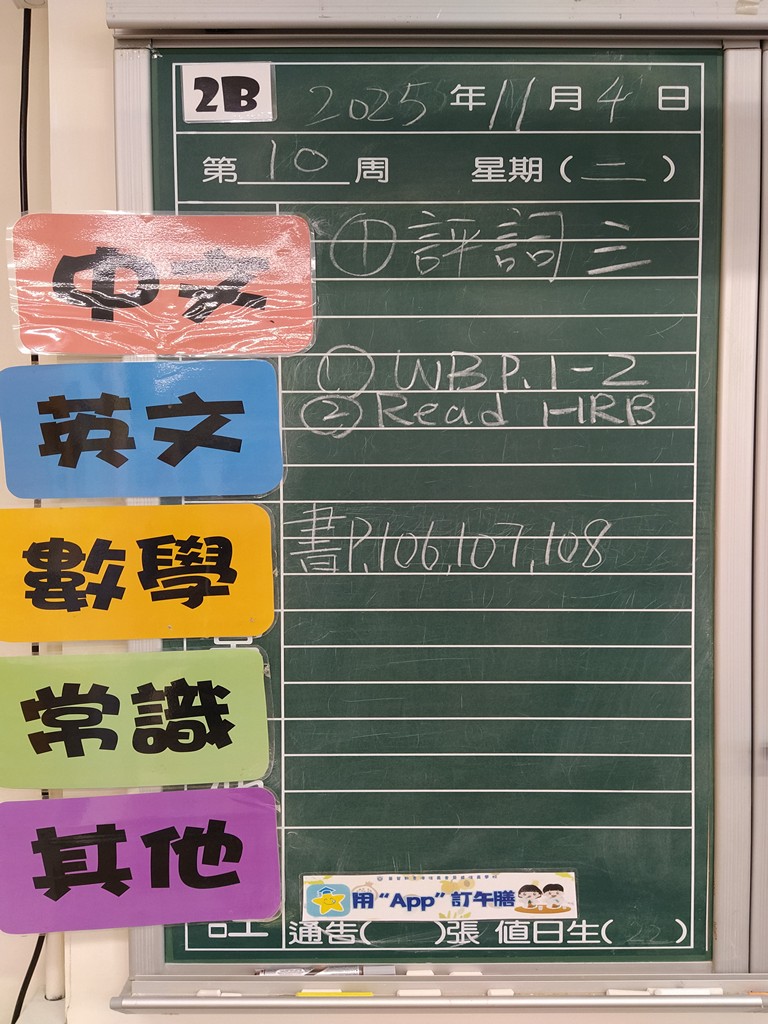 2B 2025年11月4日
第10周 星期(二)
中文 ①評詞三
英文 ①WBP.1-2
②Read HRB
數學 書P.106,107,108
常識
其他
用“App”訂午膳
通告( )張 值日生(22)